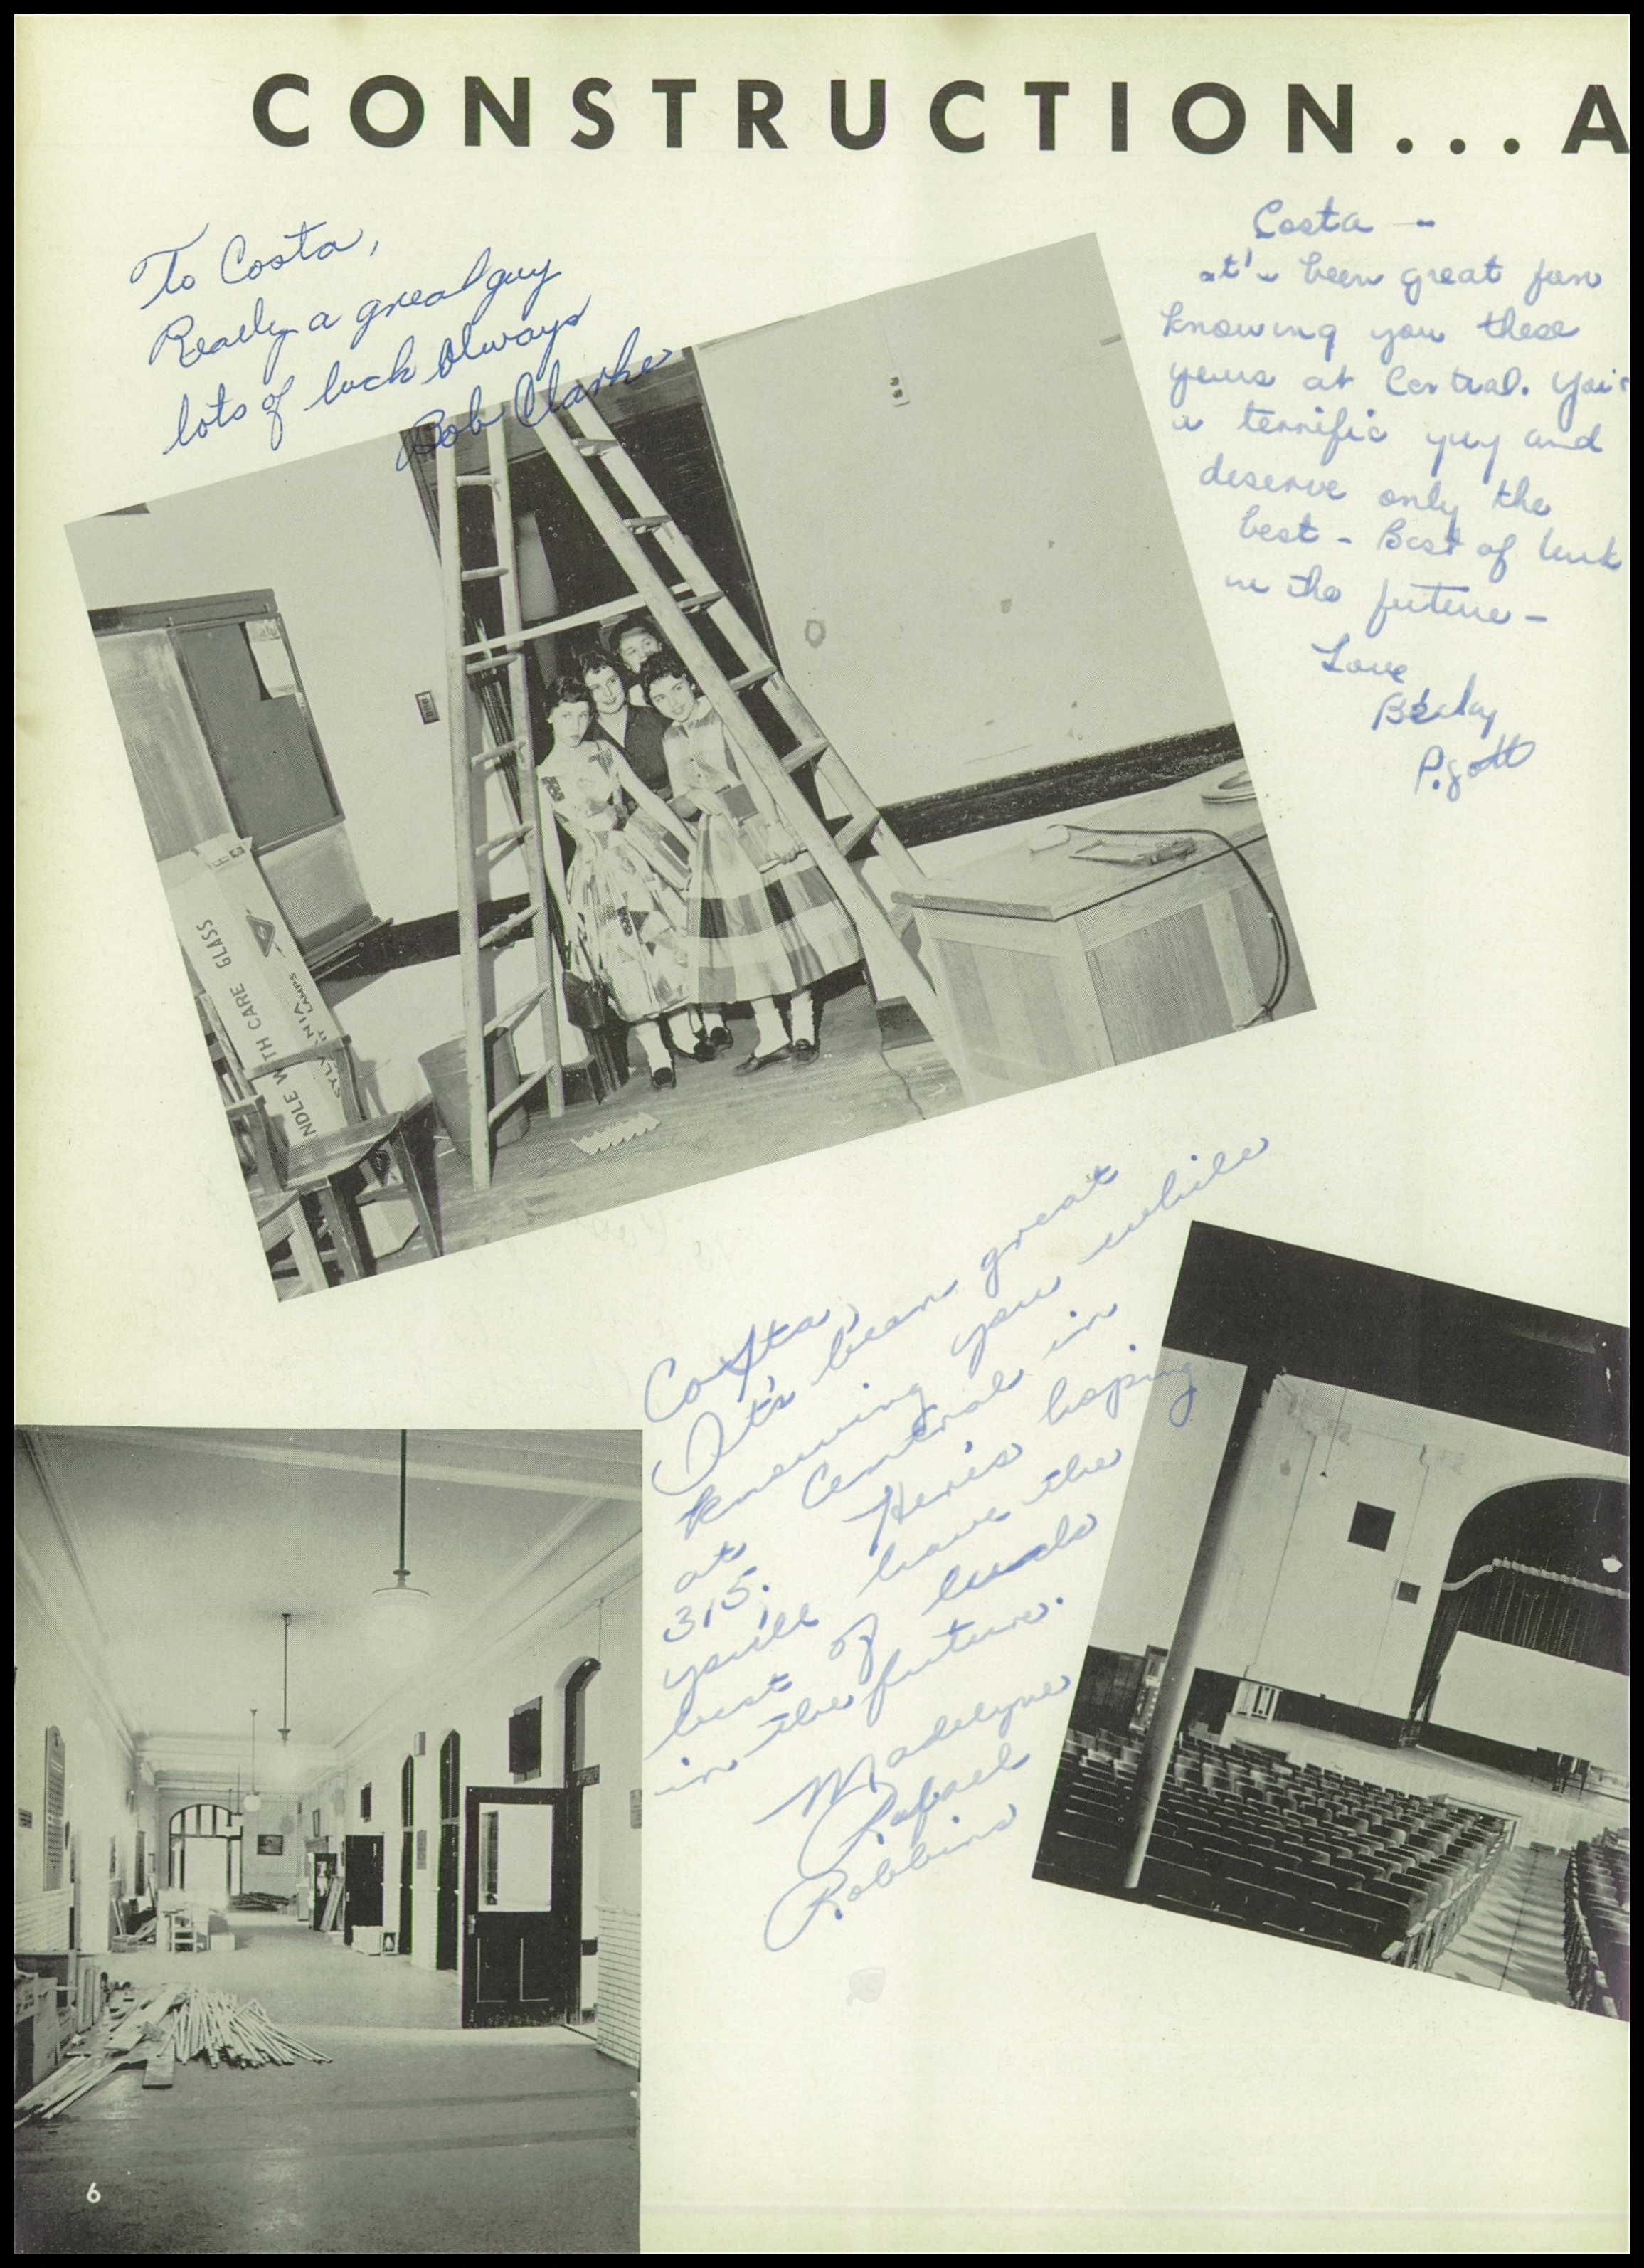 CONSTRUCTION...A
To Costa,
Really a great guy
lots of luck always
Bob Clarke
Costa —
It's been great fun
knowing you these
years at Central. You'r
a terrific guy and
deserve only the
best - Best of luck
in the future -
Love
Becky
Pigott
GLASS
NDLE WITH CARE
SYLVANIA
LAMPS
Costa,
It's been great
knowing you while
at Central in
315. Here's hoping
you'll have the
best of luck
in the future.
Madelyne
Rafael
Robbins
6